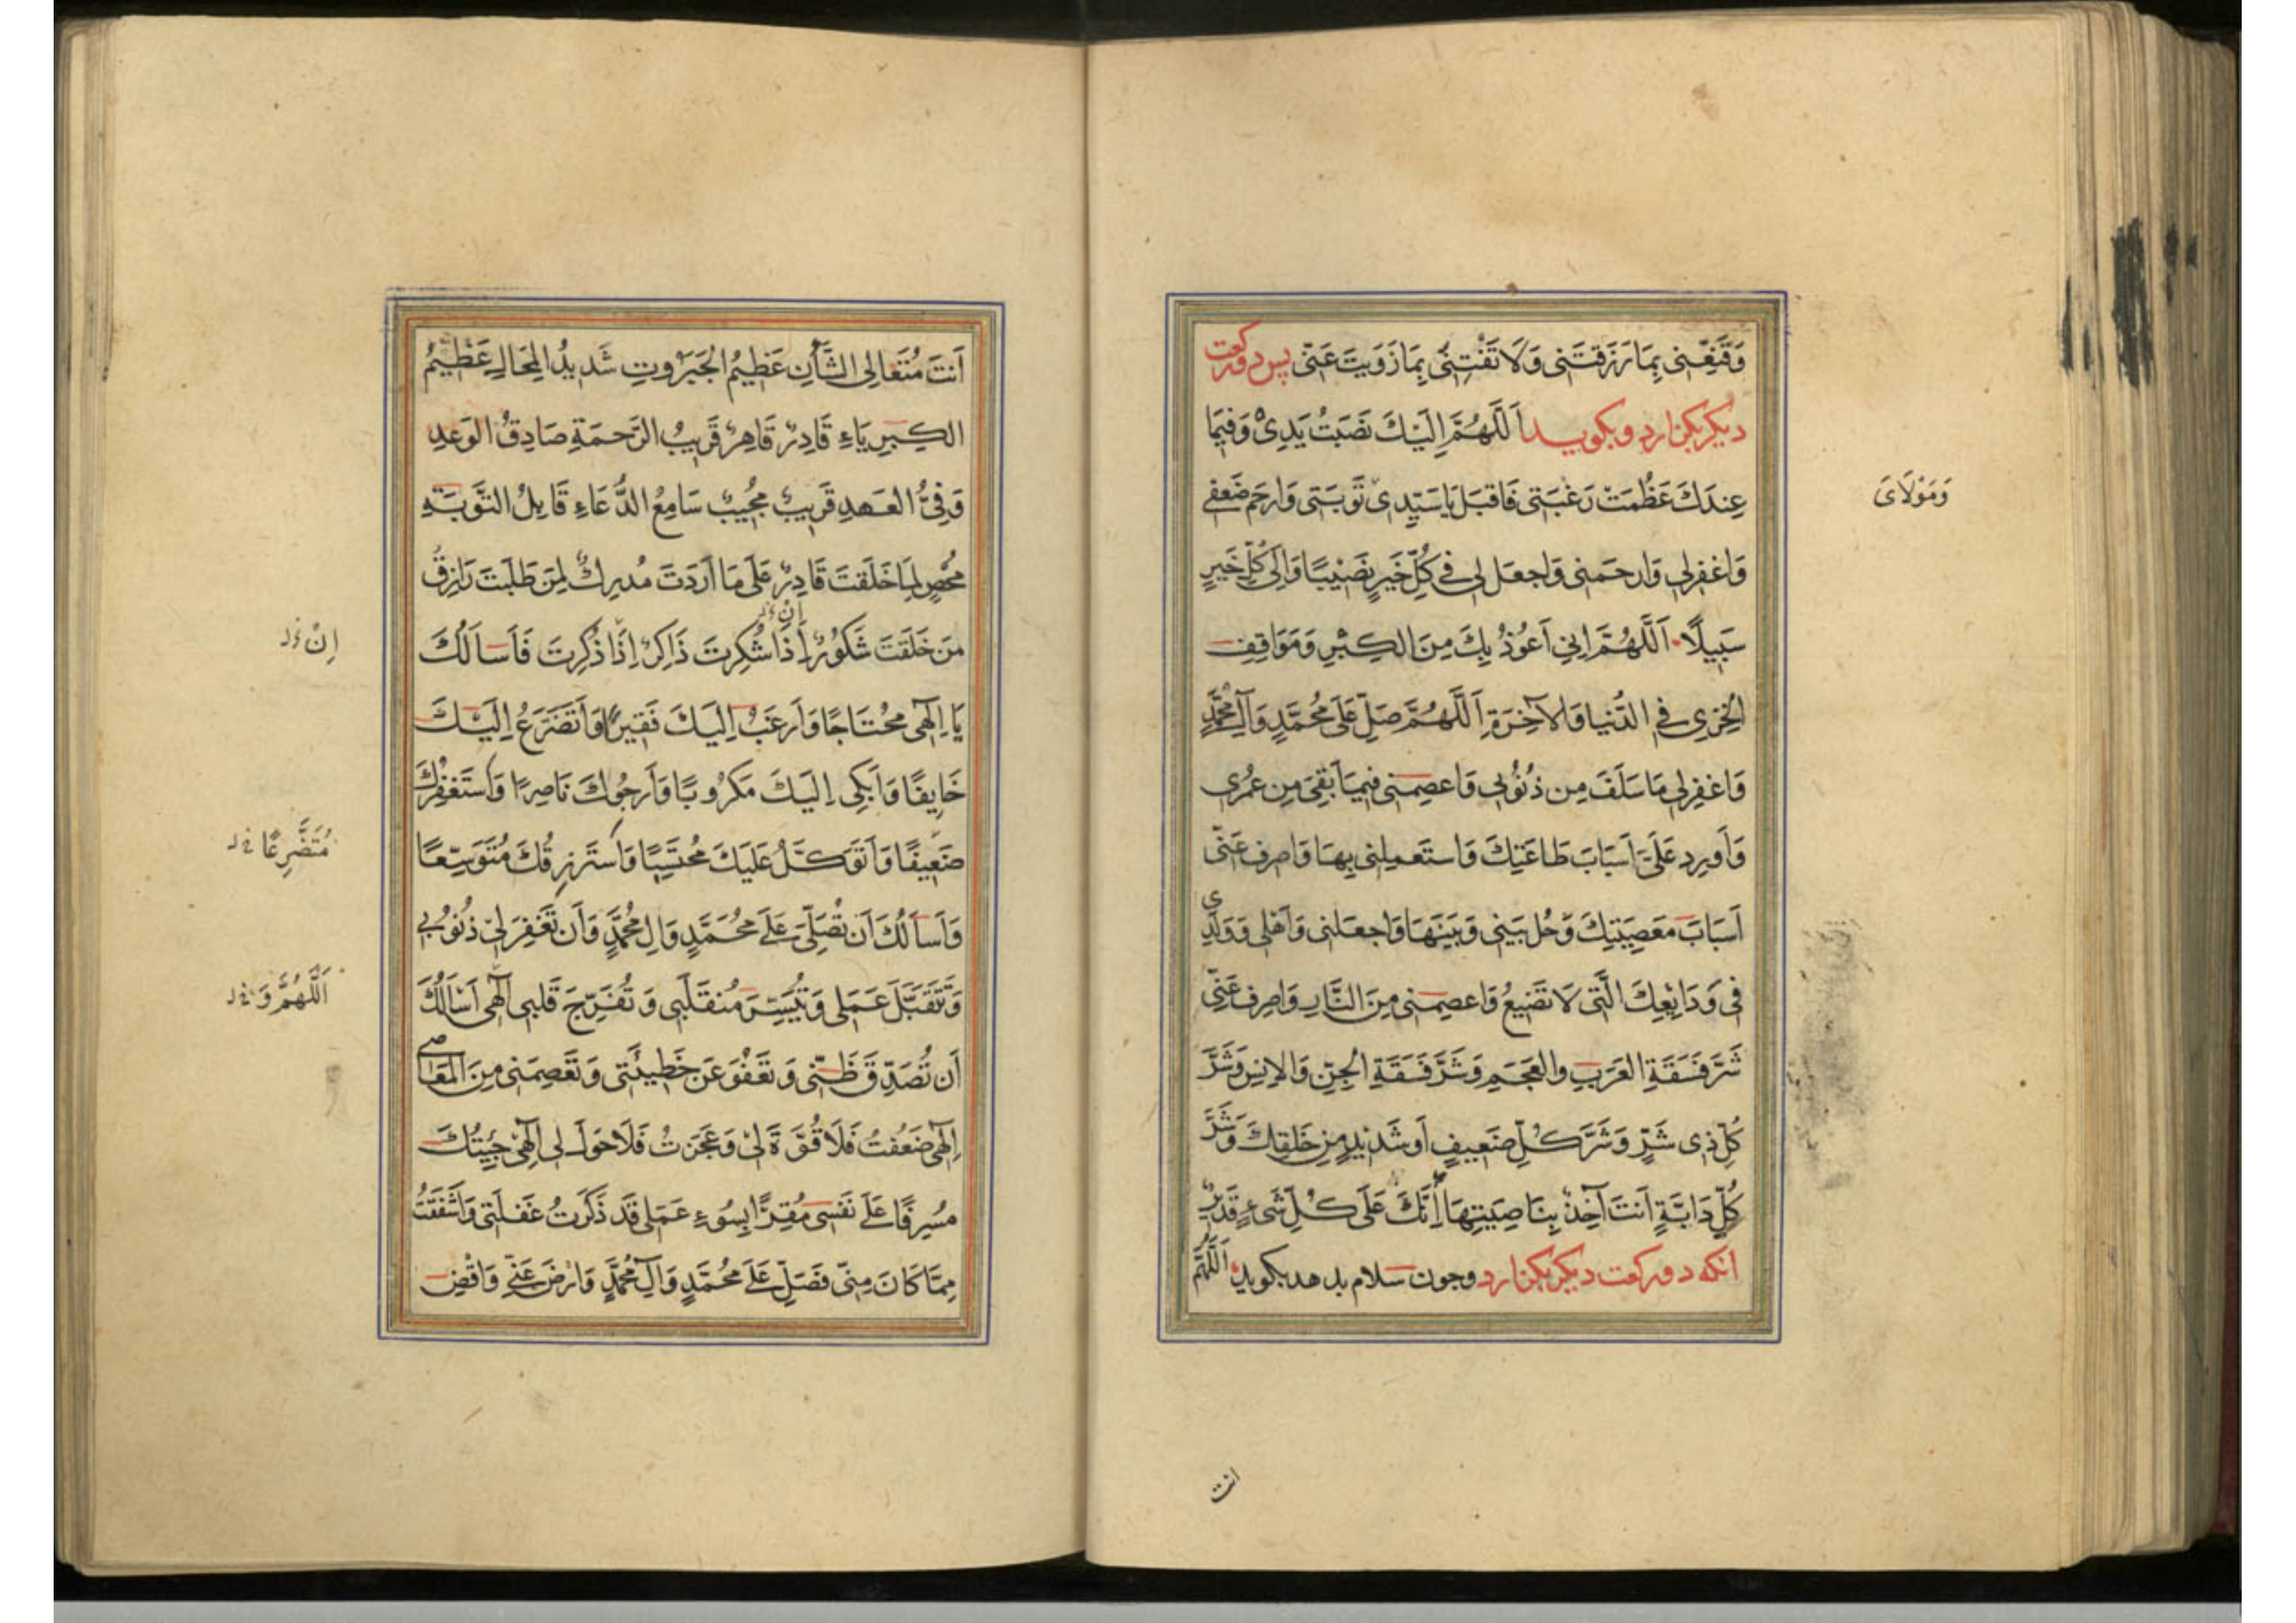 وَقَنِّعْنِي بِمَا رَزَقْتَنِي وَلَا تَفْتِنِّي بِمَا زَوَيْتَ عَنِّي پس دو رکعت
دیکر بکزارد و بکوید اَللَّهُمَّ اِلَيْكَ نَصَبْتُ يَدِيْ وَفِيمَا
عِندَكَ عَظُمَتْ رَغْبَتِي فَاقبَل يَا سَيِّدِي تَوبَتِي وَارحَم ضَعفِي
وَمَوْلَايَ
وَاغفِرلِي وَارحَمنِي وَاجعَل لِي فِي كُلِّ خَيرٍ نَصِيْبًا وَاِلَى كُلِّ خَيرٍ
سَبِيلًا اَللَّهُمَّ اِنِي اَعُوذُ بِكَ مِنَ الكِبْرِ وَمَوَاقِفِ
الخِزيِ فِي الدُّنيَا وَالآخِرَةِ اَللَّهُمَّ صَلِّ عَلَى مُحَمَّدٍ وَآلِ مُحَمَّدٍ
وَاغفِرلِي مَا سَلَفَ مِن ذُنُوبِي وَاعصِمنِي فِيمَا بَقِيَ مِن عُمُرِي
وَاَورِد عَلَيَّ اَسبَابَ طَاعَتِكَ وَاستَعمِلنِي بِهَا وَاصرِف عَنِّي
اَسبَابَ مَعصِيَتِكَ وَحُل بَينِي وَبَينَهَا وَاجعَلنِي وَاَهلِي وَوَلَدِي
فِي وَدَايِعِكَ الَّتِي لَا تَضِيعُ وَاعصِمنِي مِنَ النَّارِ وَاصرِف عَنِّي
شَرَّ فَسَقَةِ العَرَبِ والعَجَمِ وَشَرَّ فَسَقَةِ الجِنِّ وَالاِنسِ وَشَرَّ
كُلِّ ذِي شَرٍّ وَشَرَّ كُلِّ ضَعِيفٍ اَو شَدِيدٍ مِن خَلقِكَ وَشَرَّ
كُلِّ دَابَّةٍ اَنتَ آخِذٌ بِنَاصِيَتِهَا اِنَّكَ عَلَى كُلِّ شَيءٍ قَدِيرٌ
انکه دو رکعت دیکر بکزارد وجون سلام بدهد بکوید اَللَّهُمَّ
انت
اَنتَ مُتَعَالِي الشَّأنِ عَظِيمُ الجَبَرُوتِ شَدِيدُ المِحَالِ عَظِيمُ
الكِبرِيَاءِ قَادِرٌ قَاهِرٌ قَرِيبُ الرَّحمَةِ صَادِقُ الوَعدِ
وَفِيُّ العَهدِ قَرِيبٌ مُجِيبٌ سَامِعُ الدُّعَاءِ قَابِلُ التَّوبَةِ
مُحصٍ لِمَا خَلَقتَ قَادِرٌ عَلَى مَا اَرَدتَ مُدرِكٌ لِمَن طَلَبتَ رَازِقُ
مَن خَلَقتَ شَكُورٌ اِذَا شُكِرتَ ذَاكِرٌ اِذَا ذُكِرتَ فَاَسالُكَ
اِنْ
يَا اِلٰهِي مُحتَاجًا وَاَرغَبُ اِلَيكَ فَقِيرًا وَاَتَضَرَّعُ اِلَيكَ
خَايِفًا وَاَبكِي اِلَيكَ مَكرُوبًا وَاَرجُوكَ نَاصِرًا وَاَستَغفِرُكَ
ضَعِيفًا وَاَتَوَكَّلُ عَلَيكَ مُحتَسِبًا وَاَستَرزِقُكَ مُتَوَسِّعًا
مُتَضَرِّعًا
وَاَسالُكَ اَن تُصَلِّيَ عَلَى مُحَمَّدٍ وَالِ مُحَمَّدٍ وَاَن تَغفِرَ لِي ذُنُوبِي
وَتَتَقَبَّلَ عَمَلِي وَتُيَسِّرَ مُنقَلَبِي وَتُفَرِّجَ قَلبِي اِلٰهِي اَسْاَلُكَ
اَللَّهُمَّ وَ
اَن تُصَدِّقَ ظَنِّي وَتَعفُوَ عَن خَطِيئَتِي وَتَعصِمَنِي مِنَ المَعَاصِي
اِلٰهِي ضَعُفتُ فَلَا قُوَّةَ لِي وَعَجَزتُ فَلَا حَولَ لِي اِلٰهِي جِئتُكَ
مُسرِفًا عَلَى نَفسِي مُقِرًّا بِسُوءِ عَمَلِي قَد ذَكَرتُ غَفلَتِي وَاَشفَقتُ
مِمَّا كَانَ مِنِّي فَصَلِّ عَلَى مُحَمَّدٍ وَآلِ مُحَمَّدٍ وَارْضَ عَنِّي وَاقْضِ